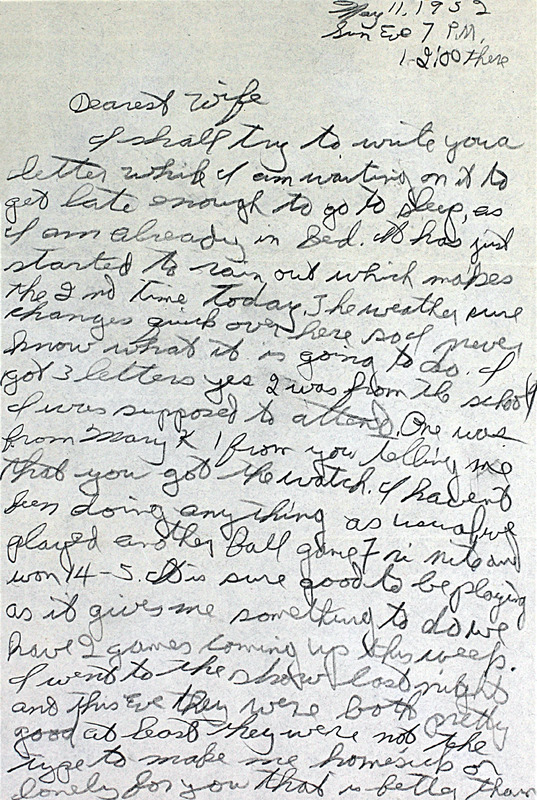 May 11, 1952
Sun Eve 7 P.M.
1-2:00 there
Dearest Wife
I shall try to write you a
letter while I am waiting on it to
get late enough to go to sleep, as
I am already in Bed. It has just
started to rain out which makes
the 2nd time today. The weather sure
changes quick over here so I never
know what it is going to do. I
got 3 letters yes 2 was from the school
I was supposed to attend. One was
from Mary K 1 from you telling me
that you got the watch. I havent
been doing anything as usual we
played another Ball game Fri nite and
won 14-5. It is sure good to be playing
as it gives me something to do we
have 2 games coming up this week.
I went to the show last night
and this Eve they were both pretty
good at least they were not the
type to make me homesick or
lonely for you that is better than